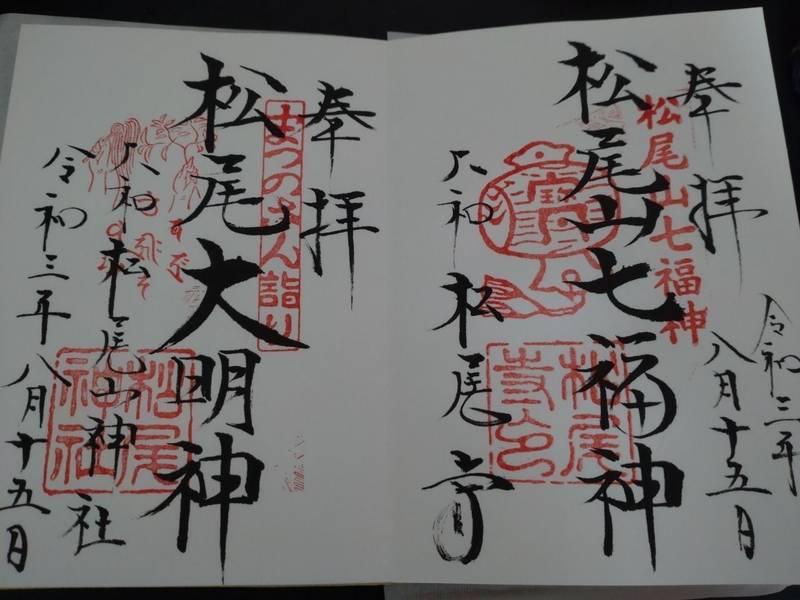 奉拝
令和三年
八月十五日
松尾山七福神
松尾山七福神
大和
松尾寺
松尾寺印
奉拝
まつのさん詣り
松尾大明神
大和松尾山神社
松尾神社
令和三年八月十五日